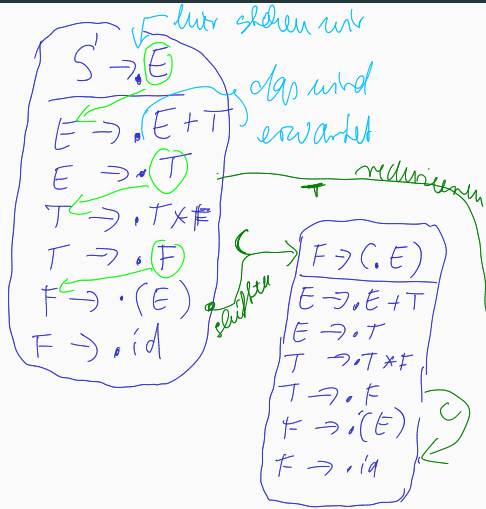 hier stehen wir
S' → .E
das wird
erwartet
E → .E+T
E → .T
T → .T*F
T → .F
F → .(E)
F → .id
T
reduzieren
(
shiften
F → (.E)
E → .E+T
E → .T
T → .T*F
T → .F
F → .(E)
F → .id
(